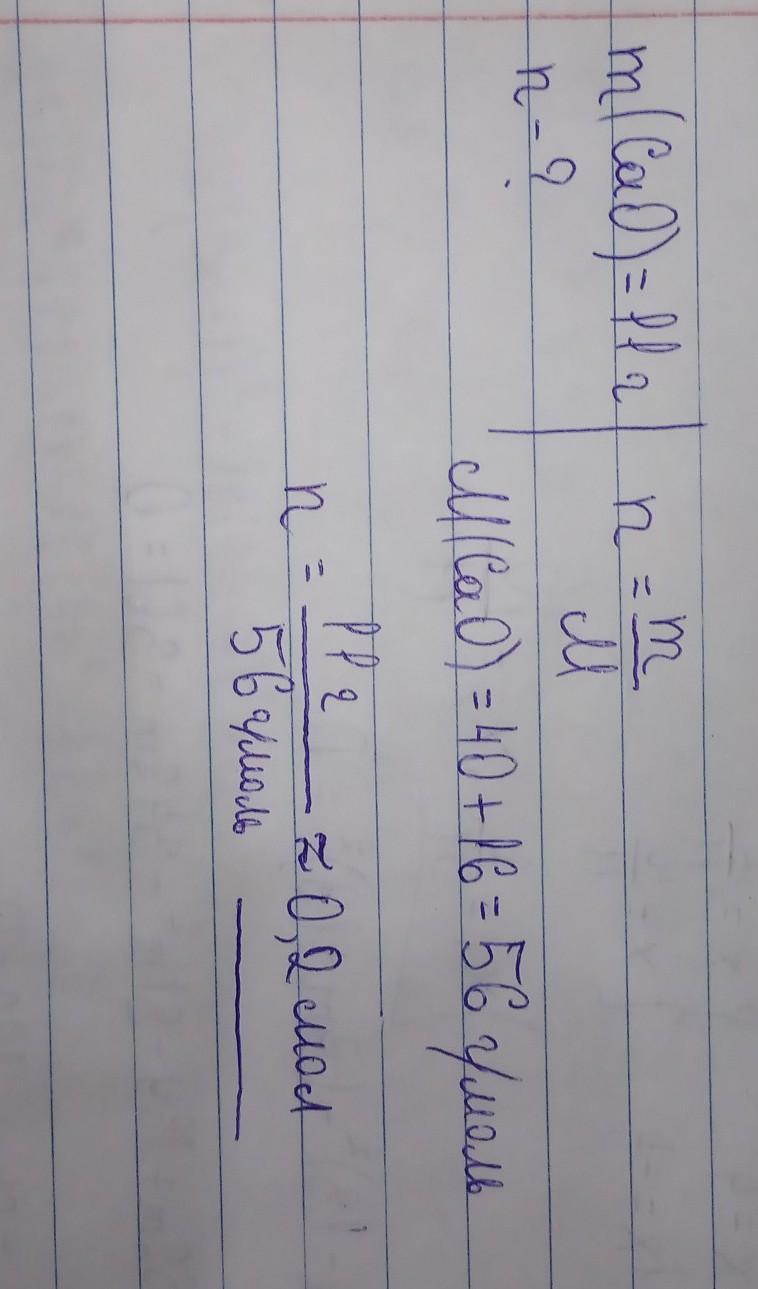 m(CaO) = 11 г
n - ?
n = m/M
M(CaO) = 40 + 16 = 56 г/моль
n = 11 г / 56 г/моль ≈ 0,2 мол